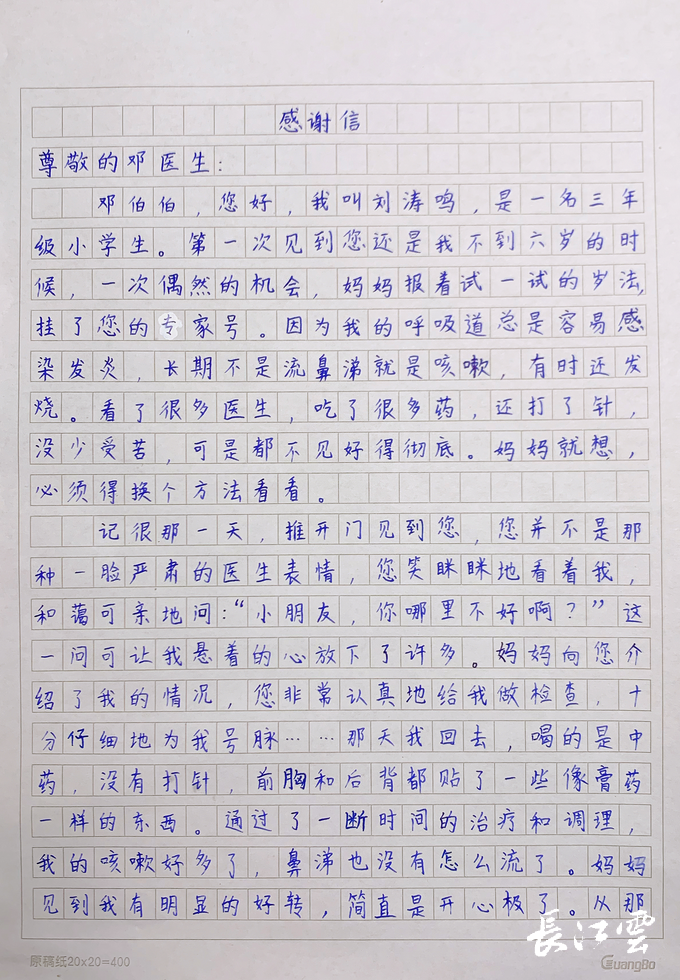 感谢信
尊敬的邓医生：
邓伯伯，您好，我叫刘涛鸣，是一名三年
级小学生。第一次见到您还是我不到六岁的时
候，一次偶然的机会，妈妈报着试一试的岁法，
挂了您的专家号。因为我的呼吸道总是容易感
染发炎，长期不是流鼻涕就是咳嗽，有时还发
烧。看了很多医生，吃了很多药，还打了针，
没少受苦，可是都不见好得彻底。妈妈就想，
必须得换个方法看看。
记很那一天，推开门见到您，您并不是那
种一脸严肃的医生表情，您笑眯眯地看着我，
和蔼可亲地问：“小朋友，你哪里不好啊？”这
一问可让我悬着的心放下了许多。妈妈向您介
绍了我的情况，您非常认真地给我做检查，十
分仔细地为我号脉……那天我回去，喝的是中
药，没有打针，前胸和后背都贴了一些像膏药
一样的东西。通过了一断时间的治疗和调理，
我的咳嗽好多了，鼻涕也没有怎么流了。妈妈
见到我有明显的好转，简直是开心极了。从那
長江雲
原稿纸20x20=400
GuangBo